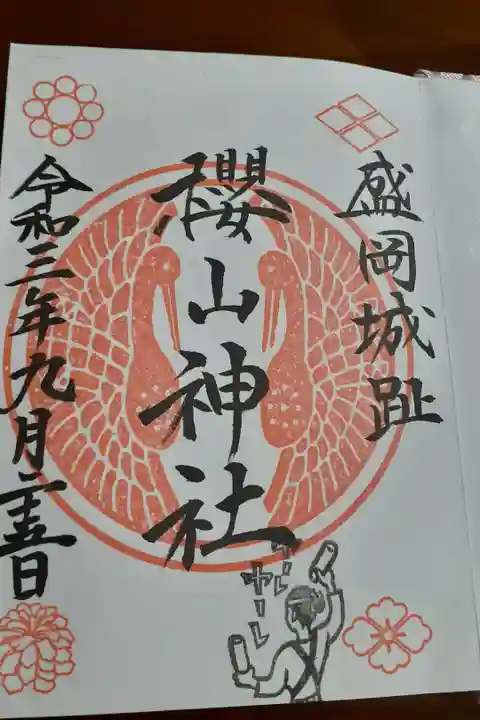 盛岡城趾
櫻山神社
令和三年九月日
ヤーレ
ヤーレ